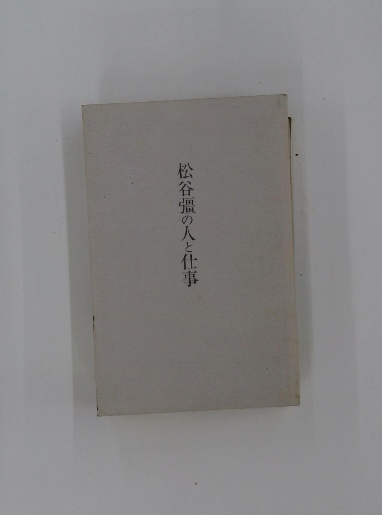 松谷彊の人と仕事